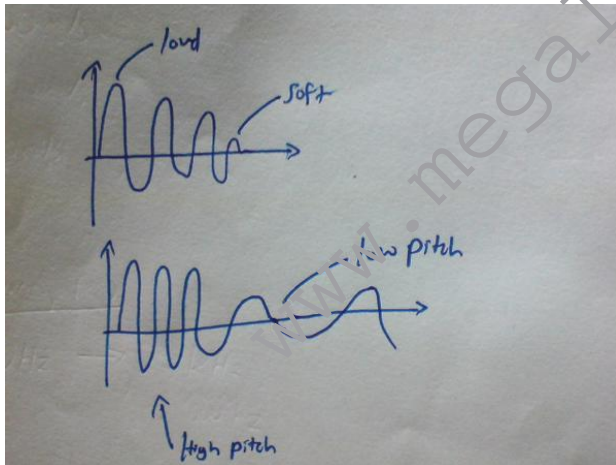 loud
soft
low pitch
High pitch
www.megal